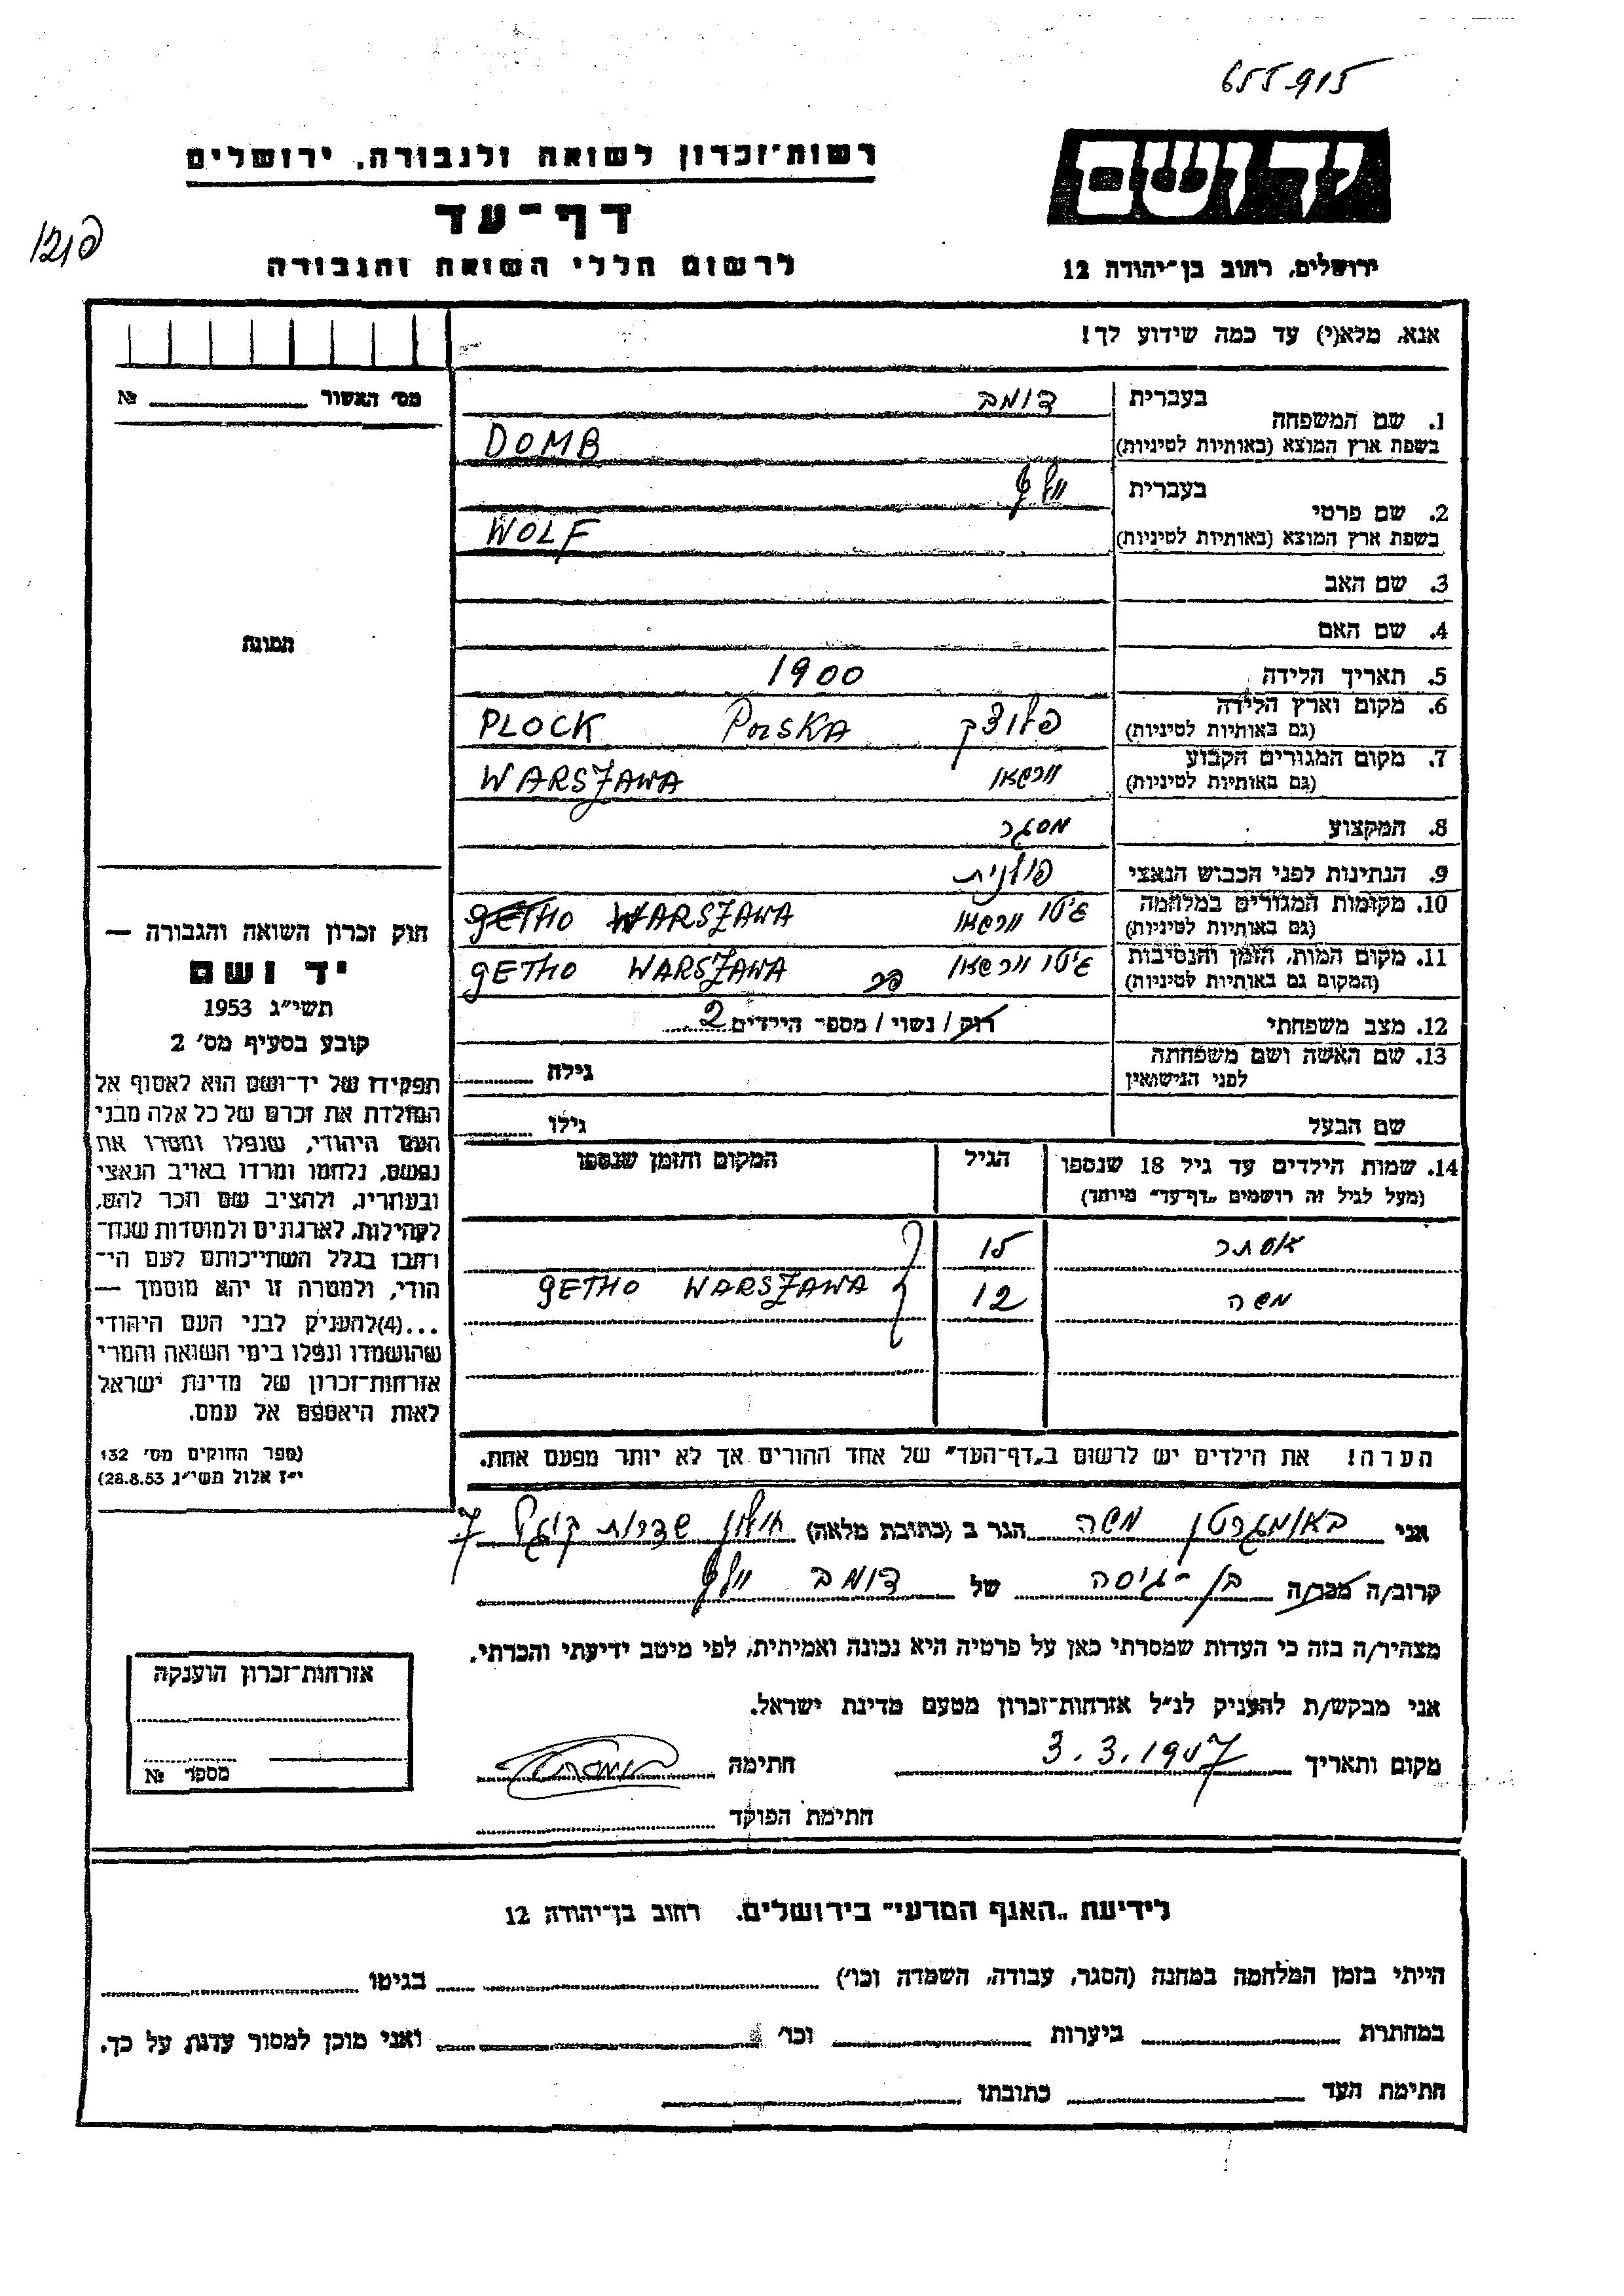 655915
רשות־זכרון לשואה ולגבורה, ירושלים
יד ושם
דף־עד
לרשום חללי השואה והגבורה
ירושלים, רחוב בן־יהודה 12
אנא, מלא(י) עד כמה שידוע לך!
מס' האשור № 
1. שם המשפחה בעברית דומב
בשפת ארץ המוצא (באותיות לטיניות) DOMB
2. שם פרטי בעברית וולף
בשפת ארץ המוצא (באותיות לטיניות) WOLF
3. שם האב
4. שם האם
תמונה
5. תאריך הלידה 1900
6. מקום וארץ הלידה (גם באותיות לטיניות) פלוצק POLSKA PLOCK
7. מקום המגורים הקבוע (גם באותיות לטיניות) וורשאו WARSZAWA
8. המקצוע מסגר
9. הנתינות לפני הכבוש הנאצי פולנית
10. מקומות המגורים במלחמה (גם באותיות לטיניות) גיטו וורשאו GETHO WARSZAWA
11. מקום המות, הזמן והנסיבות (המקום גם באותיות לטיניות) גיטו וורשאו GETHO WARSZAWA
12. מצב משפחתי רווק / נשוי / מספר הילדים 2
13. שם האשה ושם משפחתה לפני הנישואין גילה
שם הבעל גילו
14. שמות הילדים עד גיל 18 שנספו הגיל המקום והזמן שנספו
(מעל לגיל זה רושמים "דף־עד" מיוחד)
אסתר 15
משה 12 GETHO WARSZAWA
הערה! את הילדים יש לרשום ב"דף־העד" של אחד ההורים אך לא יותר מפעם אחת.
חוק זכרון השואה והגבורה —
יד ושם
תשי"ג 1953
קובע בסעיף מס' 2
תפקידו של יד־ושם הוא לאסוף אל
המולדת את זכרם של כל אלה מבני
העם היהודי, שנפלו ומסרו את
נפשם, נלחמו ומרדו באויב הנאצי
ובעוזריו, ולהציב שם וזכר להם,
לקהילות, לארגונים ולמוסדות שנח־
רבו בגלל השתייכותם לעם הי־
הודי, ולמטרה זו יהא מוסמך —
...(4)להעניק לבני העם היהודי
שהושמדו ונפלו בימי השואה והמרי
אזרחות־זכרון של מדינת ישראל
לאות היאספם אל עמם.
(ספר החוקים מס' 132
י"ז אלול תשי"ג 28.8.53)
אני באומגרטן משה הגר ב (כתובת מלאה) חולון שדרות קוגל 7
קרוב/ה מכר/ה בן-גיסה של דומב וולף
מצהיר/ה בזה כי העדות שמסרתי כאן על פרטיה היא נכונה ואמיתית, לפי מיטב ידיעתי והכרתי.
אני מבקש/ת להעניק לנ"ל אזרחות־זכרון מטעם מדינת ישראל.
מקום ותאריך חתימה
חתימת הפוקד
אזרחות־זכרון הוענקה
מספר №
לידיעת "האגף המדעי" בירושלים. רחוב בן־יהודה 12
הייתי בזמן המלחמה במחנה (הסגר, עבודה, השמדה וכו') בגיטו
במחתרת ביערות וכו' ואני מוכן למסור עדות על כך.
חתימת העד כתובתו